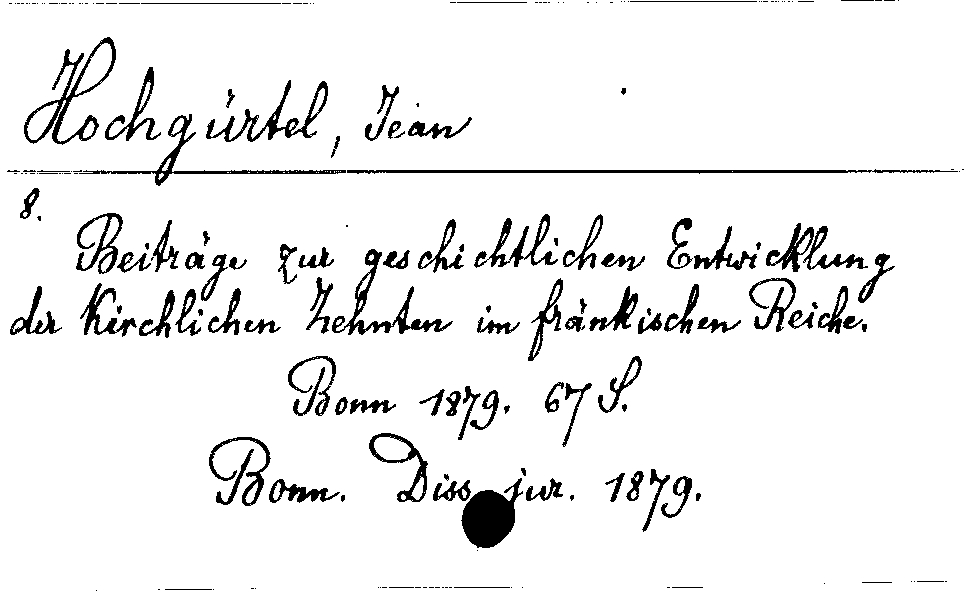 Hochgürtel, Jean
8.
Beiträge zur geschichtlichen Entwicklung
der Kirchlichen Zehnten im fränkischen Reiche.
Bonn 1879. 67 S.
Bonn. Diss. jur. 1879.